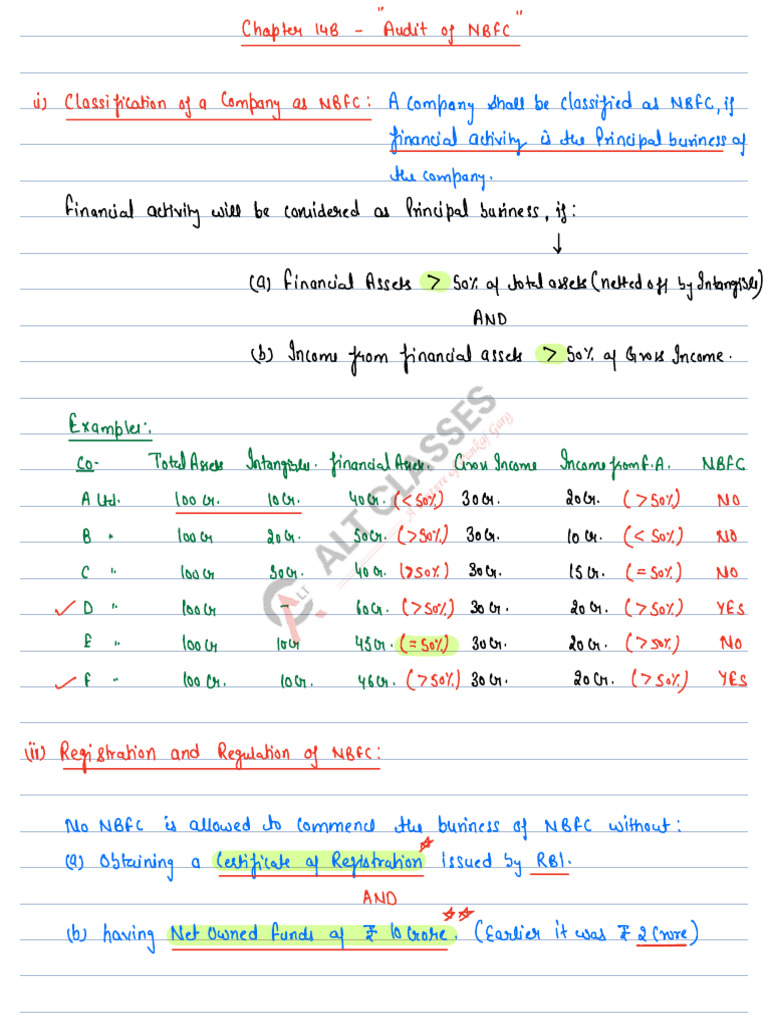 Chapter 14B - "Audit of NBFC"
i) Classification of a Company as NBFC: A company shall be classified as NBFC, if
financial activity is the Principal business of
the company.
Financial activity will be considered as Principal business, if:
↓
(a) Financial Assets > 50% of total assets (netted off by Intangible)
AND
(b) Income from financial assets > 50% of Gross Income.
Examples:
Co- Total Assets Intangibles. Financial Asset. Gross Income Income from F.A. NBFC
A Ltd. 100 Cr. 10 Cr. 40 Cr. (<50%) 30 Cr. 20 Cr. (>50%) NO
B " 100 Cr 20 Cr. 50 Cr. (>50%) 30 Cr. 10 Cr. (<50%) NO
C " 100 Cr 30 Cr. 40 Cr. (>50%) 30 Cr. 15 Cr. (=50%) NO
✓ D " 100 Cr - 60 Cr. (>50%) 30 Cr. 20 Cr. (>50%) YES
E " 100 Cr 10 Cr 45 Cr. (=50%) 30 Cr. 20 Cr. (>50%) NO
✓ F " 100 Cr. 10 Cr. 46 Cr. (>50%) 30 Cr. 20 Cr. (>50%) YES
ALT CLASSES
(ii) Registration and Regulation of NBFC:
No NBFC is allowed to commence the business of NBFC without:
(a) Obtaining a Certificate of Registration☆ issued by RBI.
AND
(b) having Net Owned Funds of ₹ 10 Crore.☆☆ (Earlier it was ₹ 2 Crore)